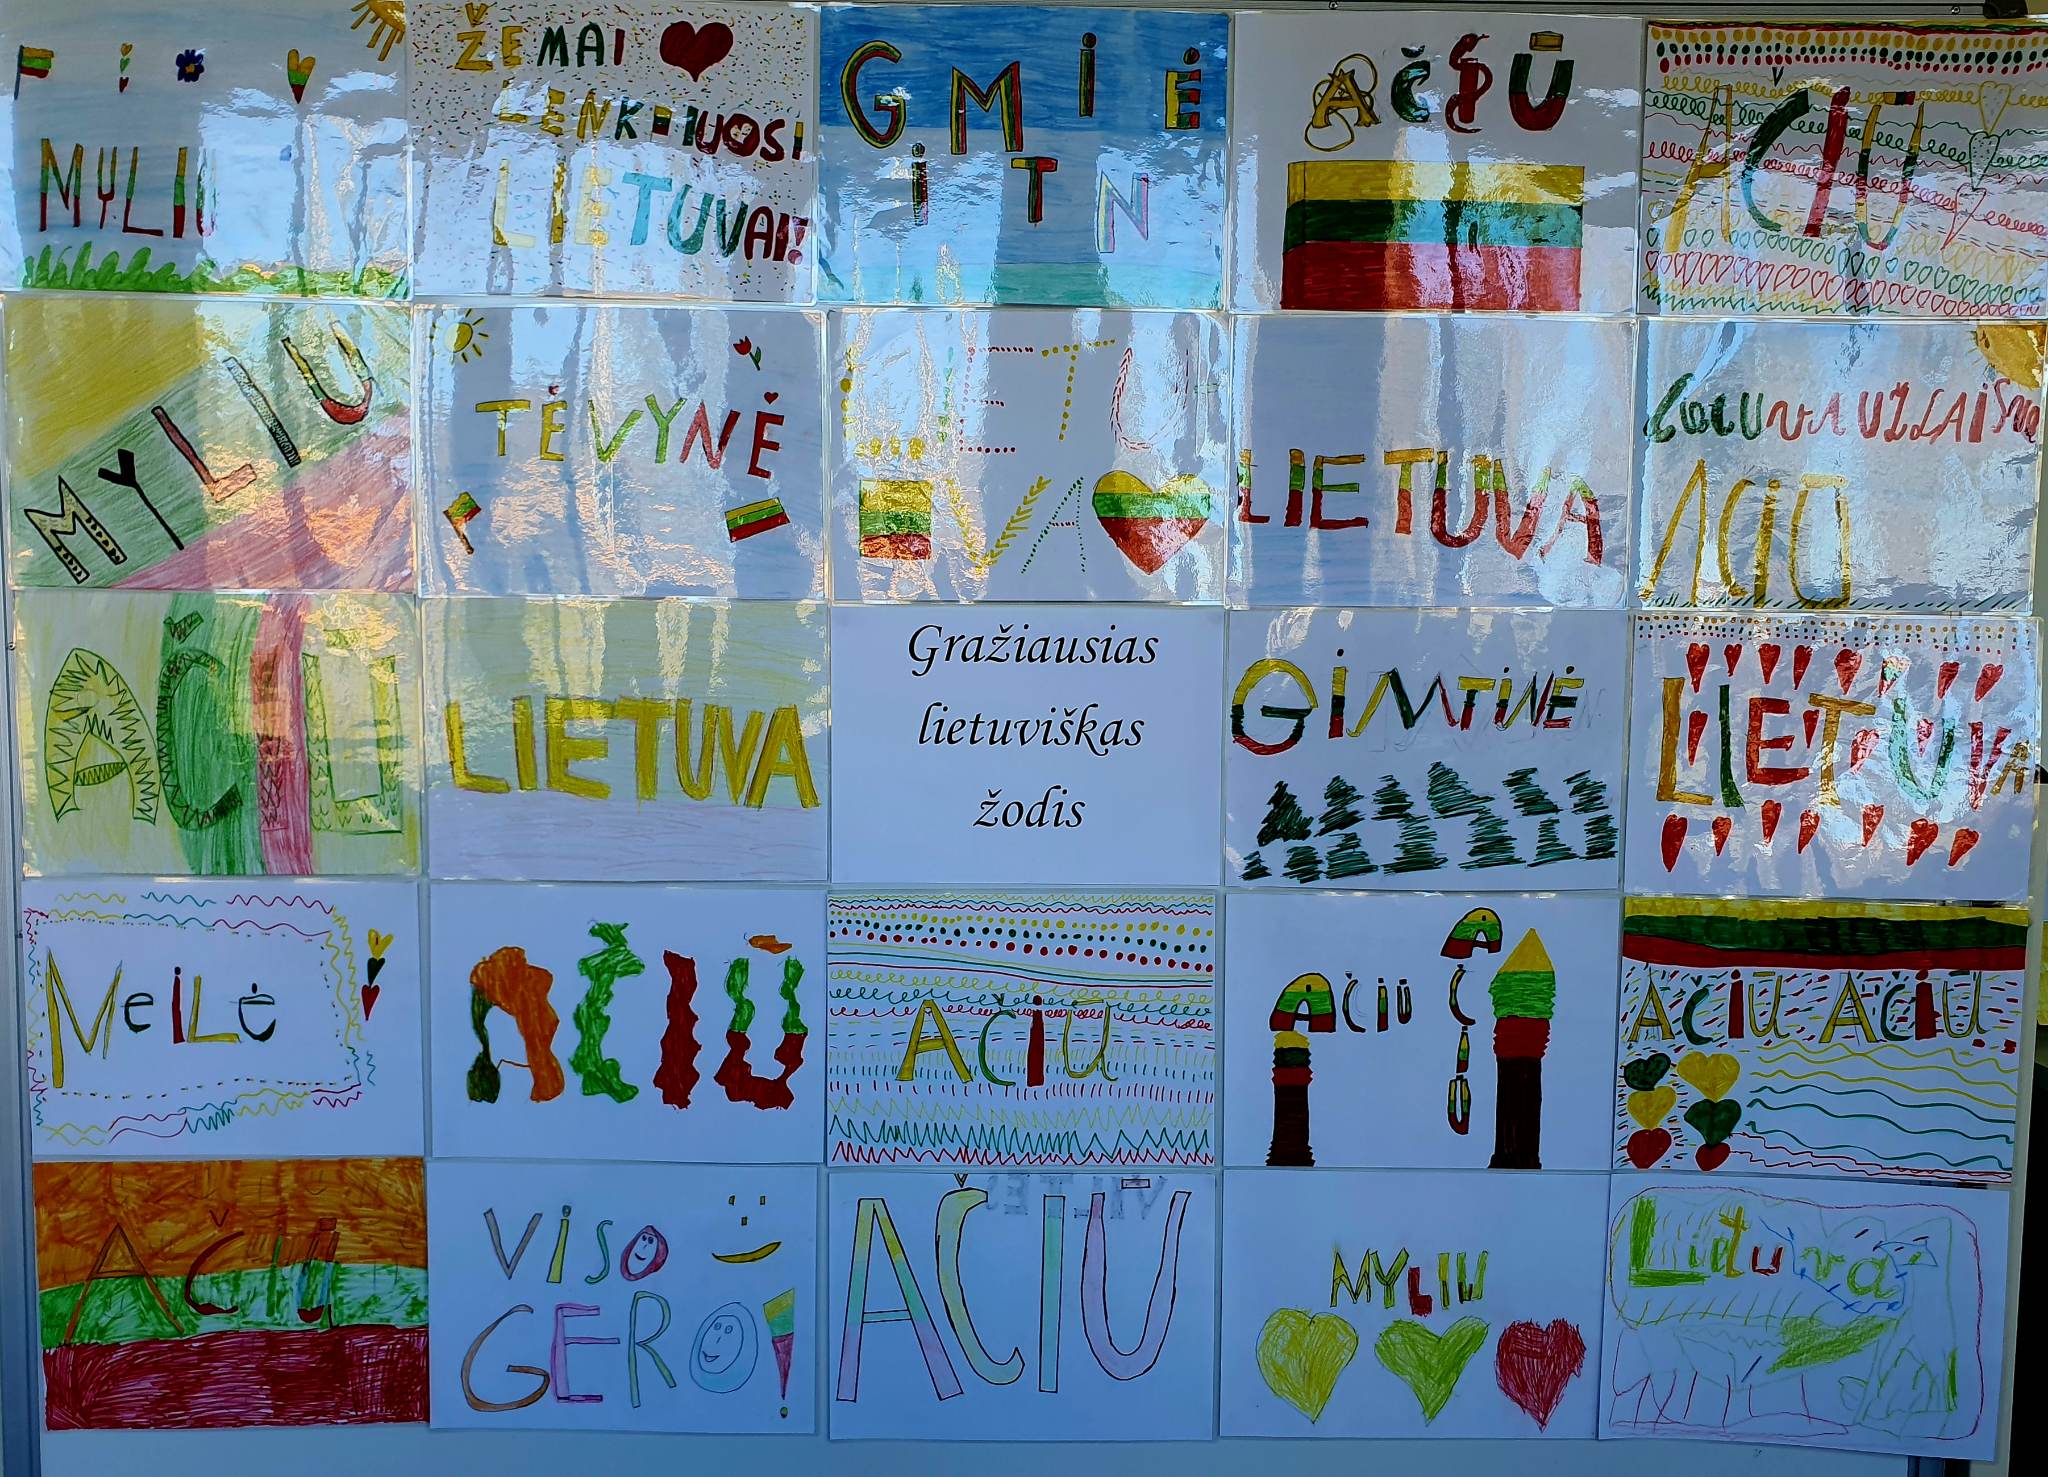 MYLIU
ŽEMAI
LENKIUOSI
LIETUVAI!
G M I Ė
I T N
AČIŪ
AČIŪ
MYLIU
TĖVYNĖ
LIETU
VA
LIETUVA
AČIŪ
AČIŪ
LIETUVA
Gražiausias
lietuviškas
žodis
GIMTINĖ
LIETUVA
MeiLė
AČIŪ
AČIŪ
AČIŪ
AČIŪ
AČIŪ AČIŪ
AČIŪ
VISO
GERO!
AČIŪ
MYLIU
Lietuva